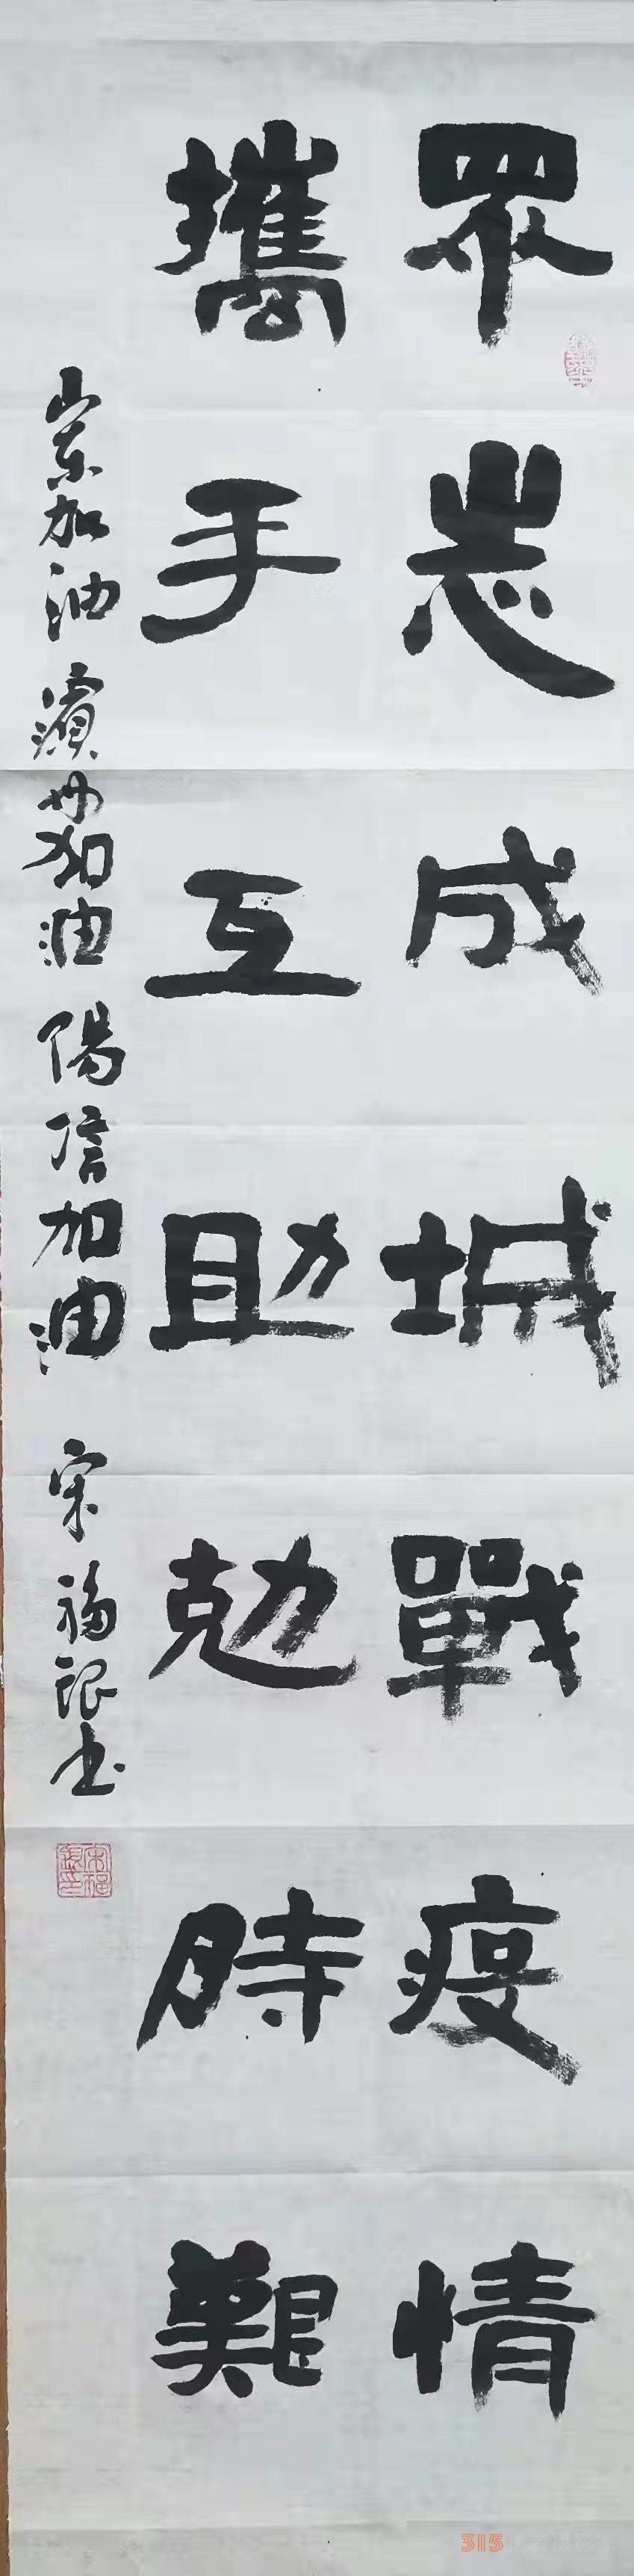 眾志成城戰疫情
攜手互助勊時艱
山東加油濱州加油陽信加油 宋福銀書
315